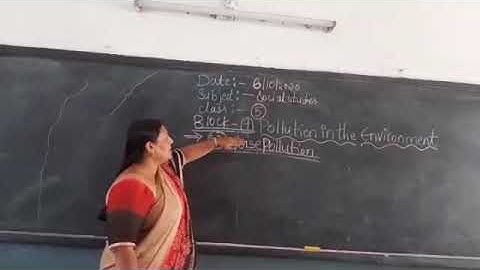 Date:- 6/10/2020
Subject:- Social studies
class:- 5
Block-
Pollution in the Environment
Pollution